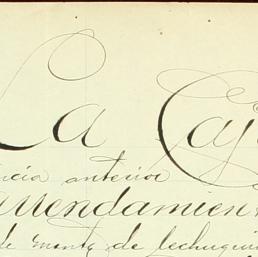 La Caj
ncia anterior
arrendamien
de venta de lechugui